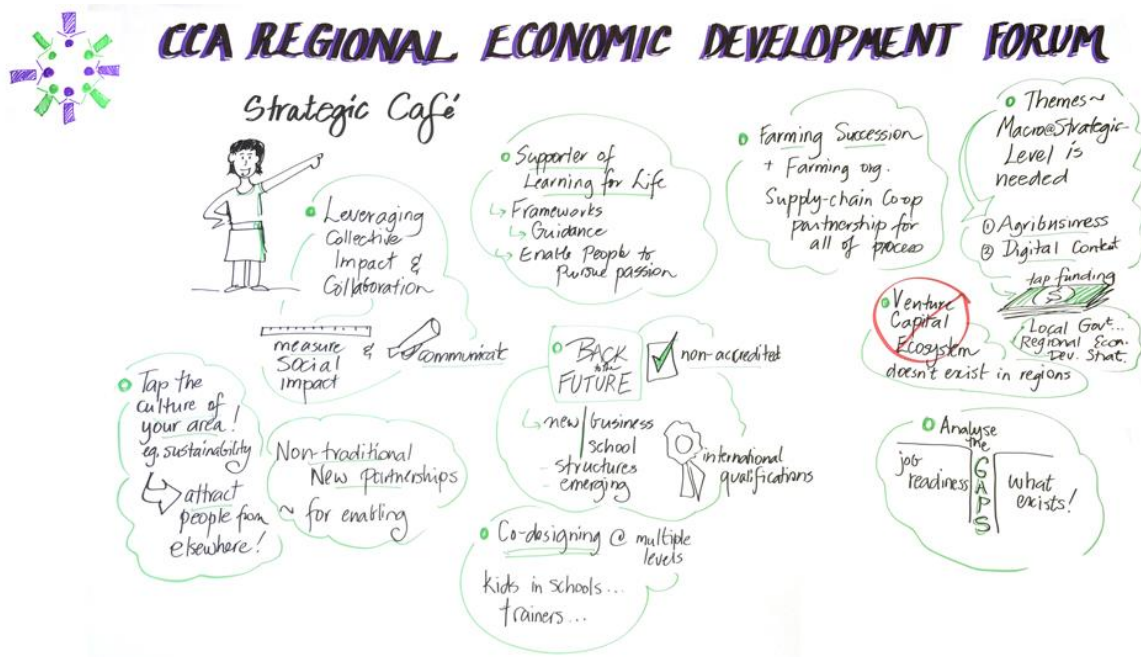 CCA REGIONAL ECONOMIC DEVELOPMENT FORUM
Strategic Café
Leveraging
Collective
Impact &
Collaboration
measure
social
impact
&
communicate
Tap the
culture of
your area!
eg. sustainability
attract
people from
elsewhere!
Non-traditional
New partnerships
~ for enabling
Supporter of
Learning for Life
Frameworks
Guidance
Enable People to
Pursue passion
BACK
to the
FUTURE
non-accredited
new business
school
- structures
- emerging
international
qualifications
Co-designing @ multiple
levels
kids in schools...
trainers...
Farming Succession
+ Farming org.
Supply-chain Co-op
partnership for
all of process
Themes~
Macro@Strategic
Level is
needed
① Agribusiness
② Digital Content
tap funding
$
Local Govt...
Regional Econ.
Dev. Strat.
Venture
Capital
Ecosystem
doesn't exist in regions
Analyse
the
GAPS
job
readiness
what
exists!